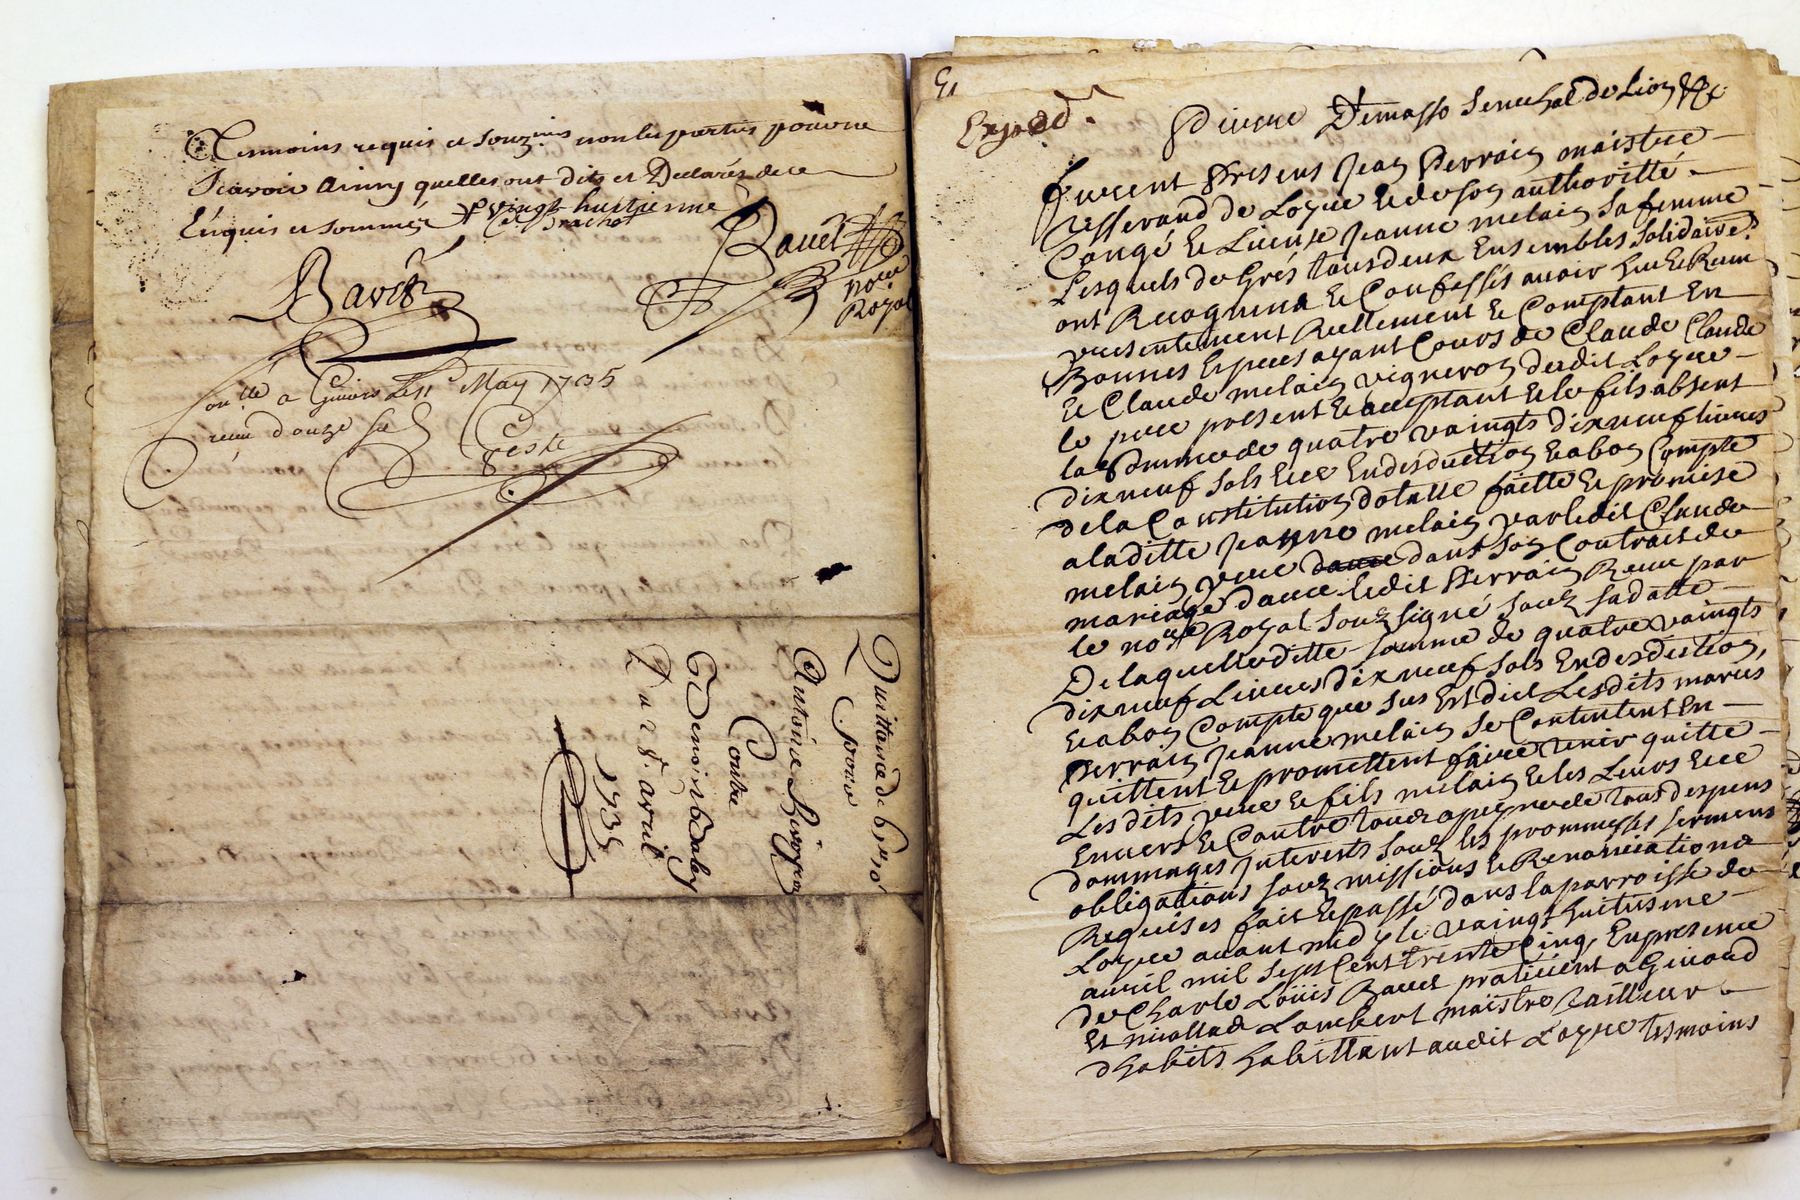 Tesmoins requis et souz.nés non les parties pour ne
scavoir ainsy quelles ont dits et Declarés de ce
Enquis et sommés # vingt huitiesme
Brachot
Bavet
Bavet
no.re
Royal
Con.llé a Givors Le 11 May 1735
receu douze sols
Geste
Quittance de
pour
Antoine
Contre
Benoist
Du 28.e avril
1735
51
Exped.
Pierre Demasso Senechal de Lion &c
furent Presens Jean Perrain maistre
Tisserand de Loyre & de son authoritté
Congé & License Jeanne melain sa femme
Lesquels de Grés tous deux Ensembles solidaire.t
ont Recognues & Confessés avoir heu & Receu
presentement Reellement & Comptant En
Bonnes Especes ayant Cours de Claude Claude
& Claude melain vigneron dudit Loyre
le pere present & acceptant & le fils absent
la Somme de quatre vaingts dix neuf livres
dix neuf sols & ce En desduction & a bon Compte
de la Constitution dotalle faitte & promise
a la ditte Jeanne melain par ledit Claude
melain pere dans son Contrait de
mariage d'avec ledit Perrain Receu par
le no.re Royal souz signé souz sa datte
De laquelle ditte somme de quatre vaingts
dix neuf Livres dix neuf sols En desduction,
& a bon Compte que sus Est dict Lesdits mariés
Perrain Jeanne melain se Contentent En
quittent & promettent faire tenir quitte
Les dits pere & fils melain & les Leurs & ce
Envers & Contre tous a peyne de tous despens
dommages Interests souz les prommesses sermens
obligations souzmissions & Renonciations
Requises fait & passé dans la parroisse de
Loyre avant midy le vaingt huitiesme
avril mil sept Cent trente Cinq, En presence
de Charle Loüis Bavet praticient a Givord
Et Lambert maistre Tailleur
d'habits habittant audit Loyre tesmoins